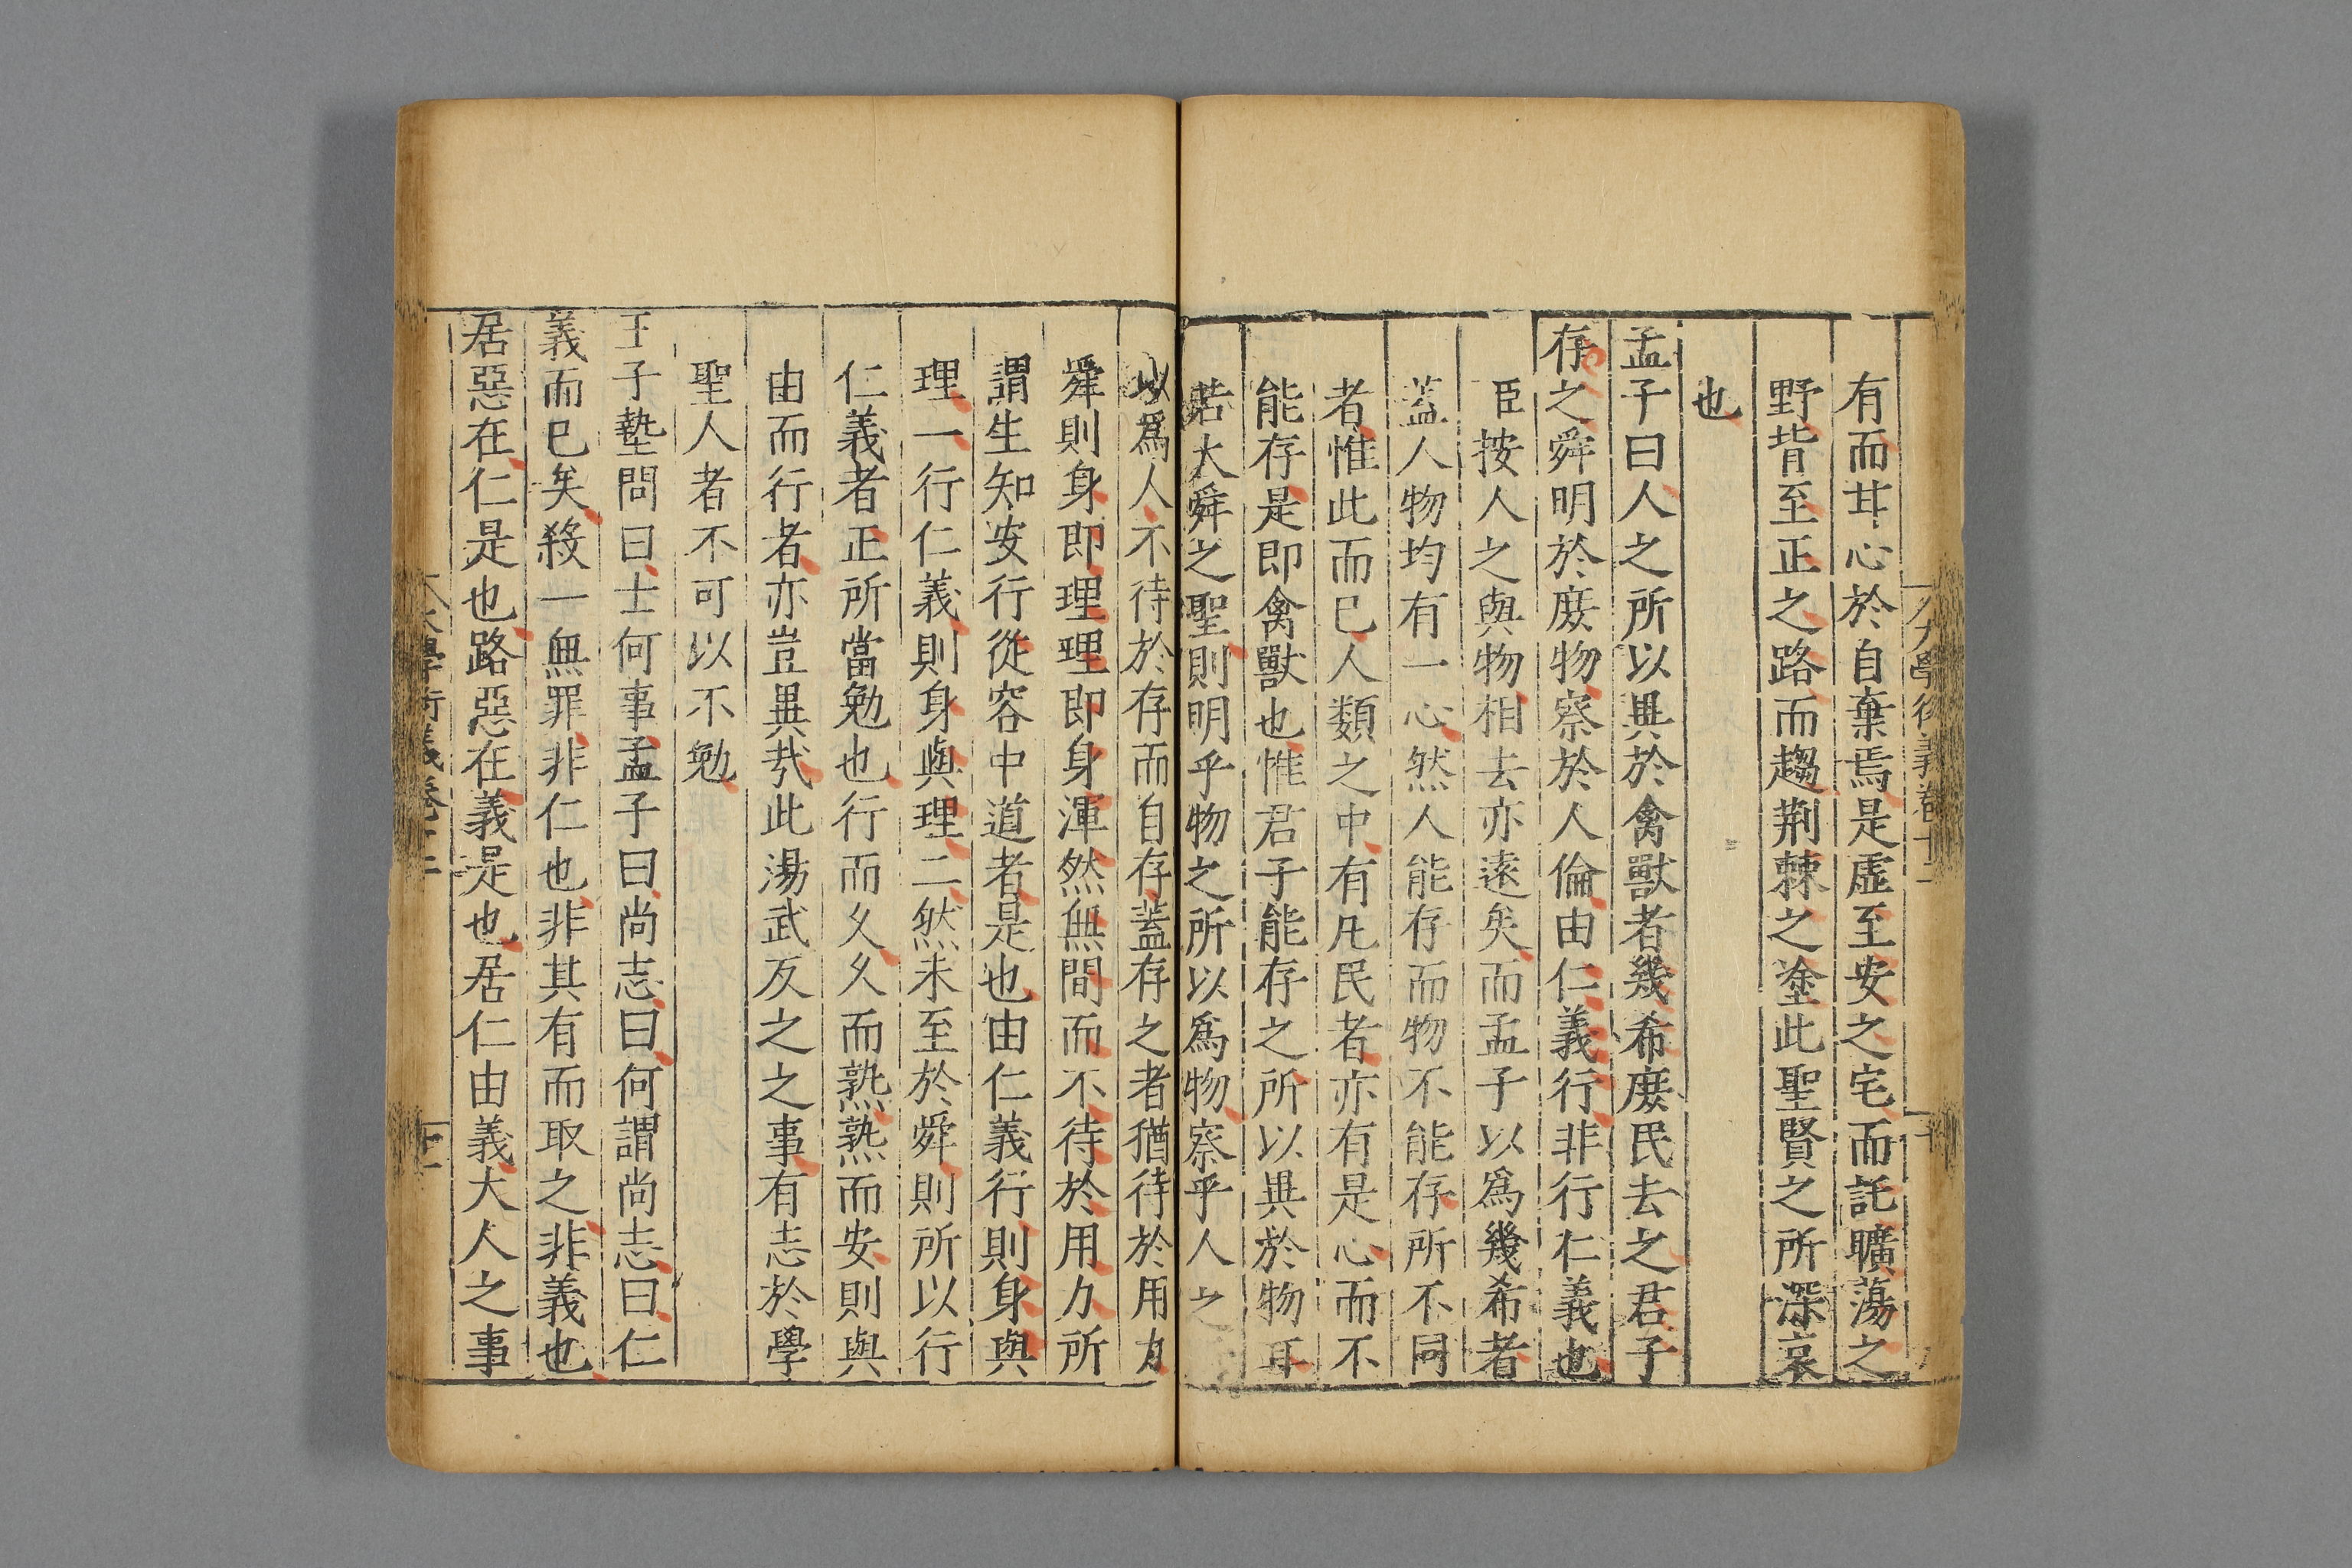 有而甘心於自棄焉是虛至安之宅而託曠蕩之
野背至正之路而趨荆棘之塗此聖賢之所深哀
也
孟子曰人之所以異於禽獸者幾希庶民去之君子
存之舜明於庶物察於人倫由仁義行非行仁義也
臣按人之與物相去亦遠矣而孟子以爲幾希者
蓋人物均有一心然人能存而物不能存所不同
者惟此而已人類之中有凡民者亦有是心而不
能存是即禽獸也惟君子能存之所以異於物耳
若大舜之聖則明乎物之所以爲物察乎人之
以爲人不待於存而自存蓋存之者猶待於用力
舜則身即理理即身渾然無間而不待於用力所
謂生知安行從容中道者是也由仁義行則身與
理一行仁義則身與理二然未至於舜則所以行
仁義者正所當勉也行而久久而熟熟而安則與
由而行者亦豈異哉此湯武反之之事有志於學
聖人者不可以不勉
王子墊問曰士何事孟子曰尚志曰何謂尚志曰仁
義而已矣殺一無罪非仁也非其有而取之非義也
居惡在仁是也路惡在義是也居仁由義大人之事
大學衍義卷十二